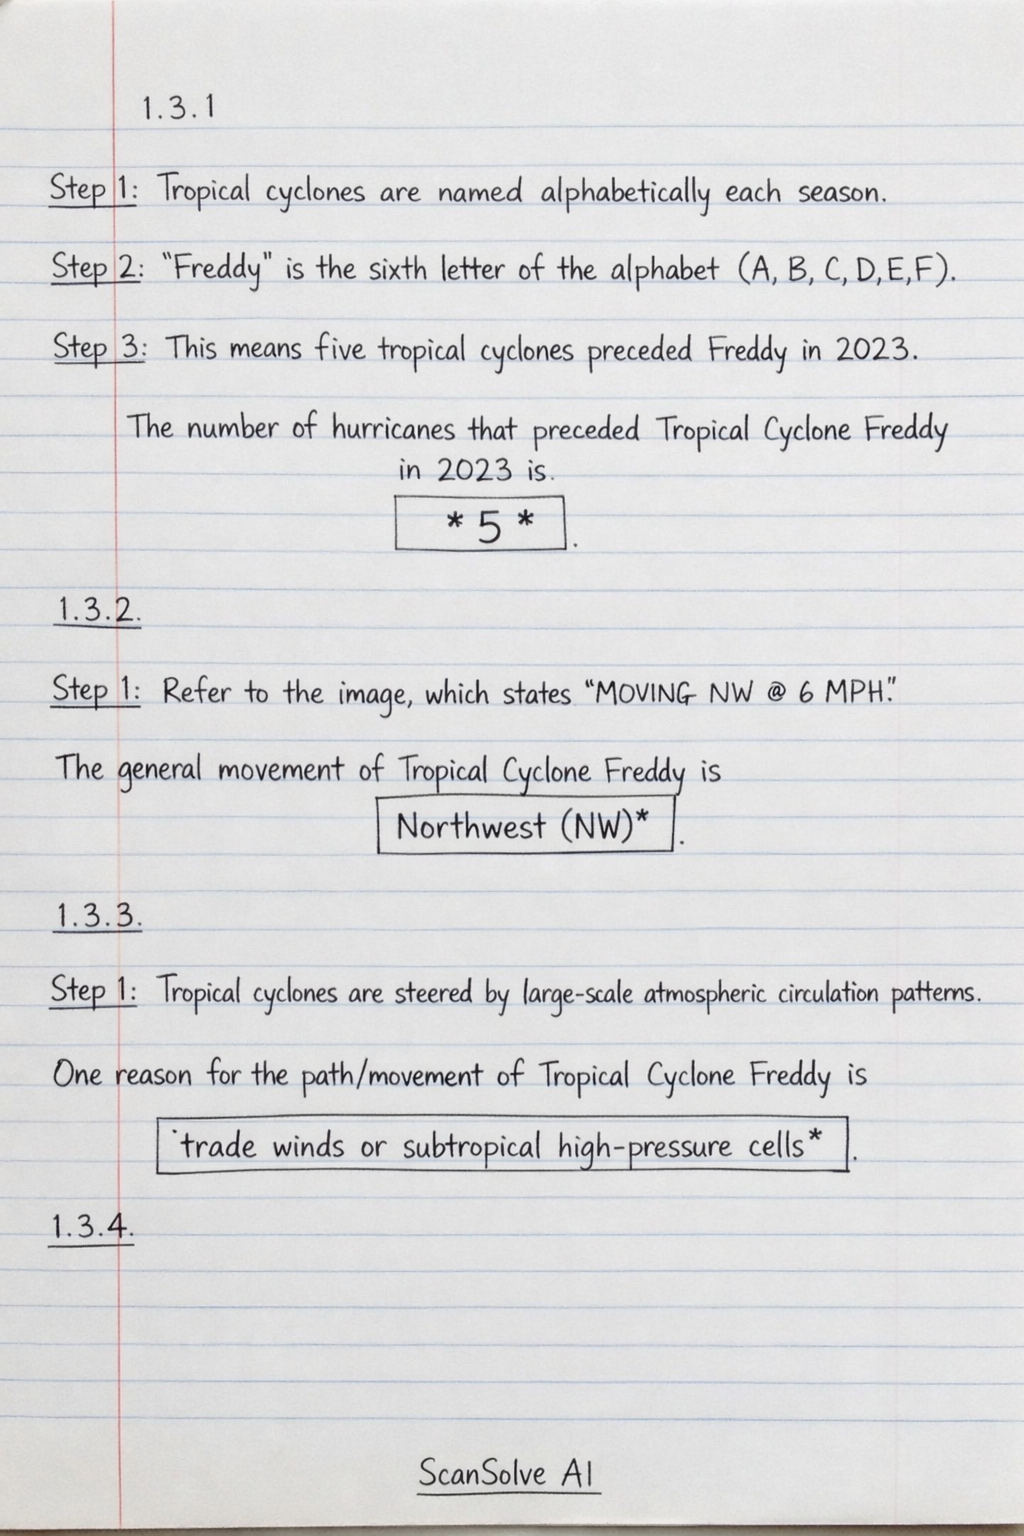 1.3.1
Step 1: Tropical cyclones are named alphabetically each season.
Step 2: "Freddy" is the sixth letter of the alphabet (A, B, C, D, E, F).
Step 3: This means five tropical cyclones preceded Freddy in 2023.
The number of hurricanes that preceded Tropical Cyclone Freddy
in 2023 is.
* 5 *.
1.3.2.
Step 1: Refer to the image, which states "MOVING NW @ 6 MPH".
The general movement of Tropical Cyclone Freddy is
Northwest (NW)*.
1.3.3.
Step 1: Tropical cyclones are steered by large-scale atmospheric circulation patterns.
One reason for the path/movement of Tropical Cyclone Freddy is
`trade winds or subtropical high-pressure cells*.
1.3.4.
ScanSolve AI